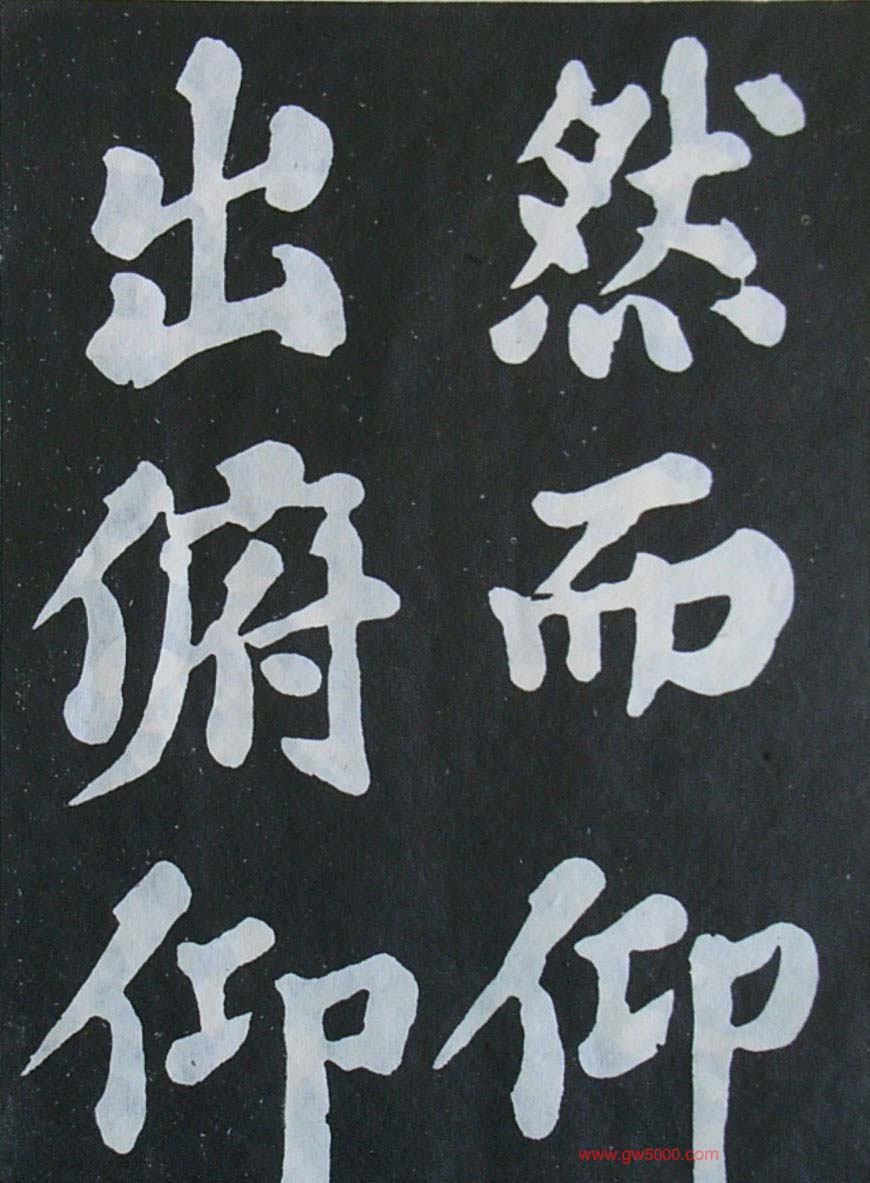 然而仰
出俯仰
www.gw5000.com